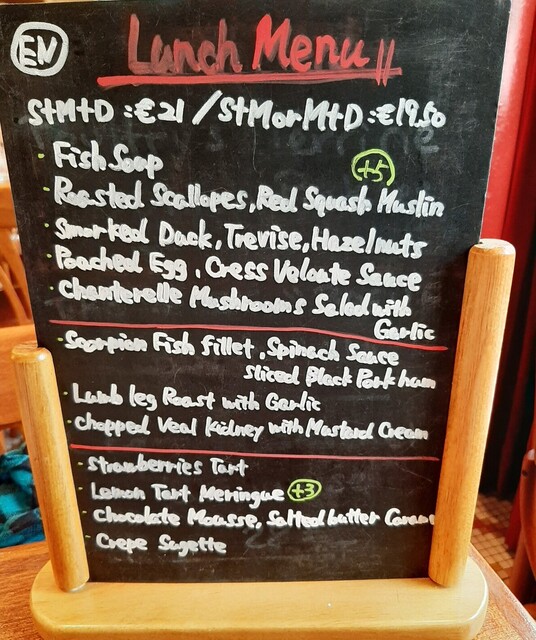 EN
Lunch Menu
S+M+D :€21 / S+M or M+D :€19.50
+5
· Fish Soop
· Roasted Scallopes, Red Squash Muslin
· Smorked Duck, Trevise, Hazelnuts
· Poached Egg, Cress Veloute Sauce
· Chanterelle Mushrooms Salad with
Garlic
· Scorpian Fish fillet, Spinach Sauce
sliced Black Pork ham
· Lamb leg Roast with Garlic
· chopped Veal Kidney with Mustard Cream
· Strawberries Tart
· Lemon Tart Meringue +3
· Chocolate Mousse, Salted butter Caram
· Crepe Sugette